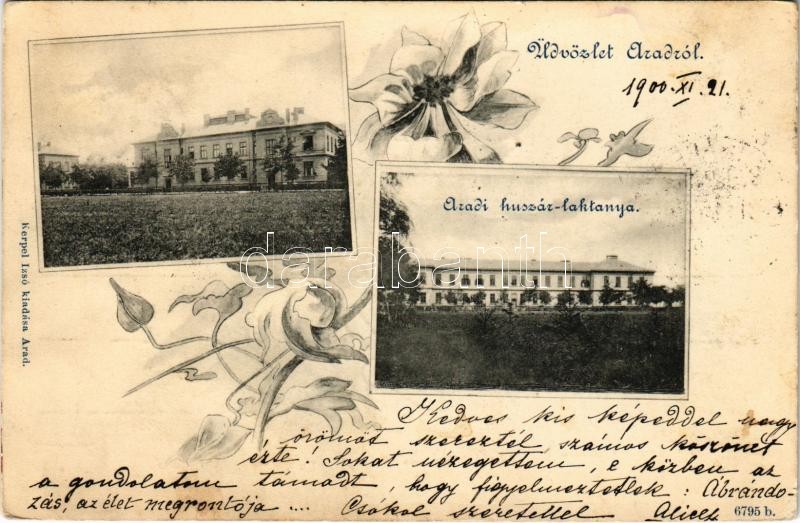 Üdvözlet Aradról.
1900. XI. 21.
Aradi huszár-laktanya.
darabanth
Kerpel Izsó kiadása Arad.
Kedves kis képeddel nagy
örömöt szereztél, számos köszönet
ezte! Sokat nézegettem, e közben az
a gondolatom támadt, hogy figyelmeztetlek: Ábrándo-
zás, az élet megrontója .... Csókol szeretettel Alice
6795 b.